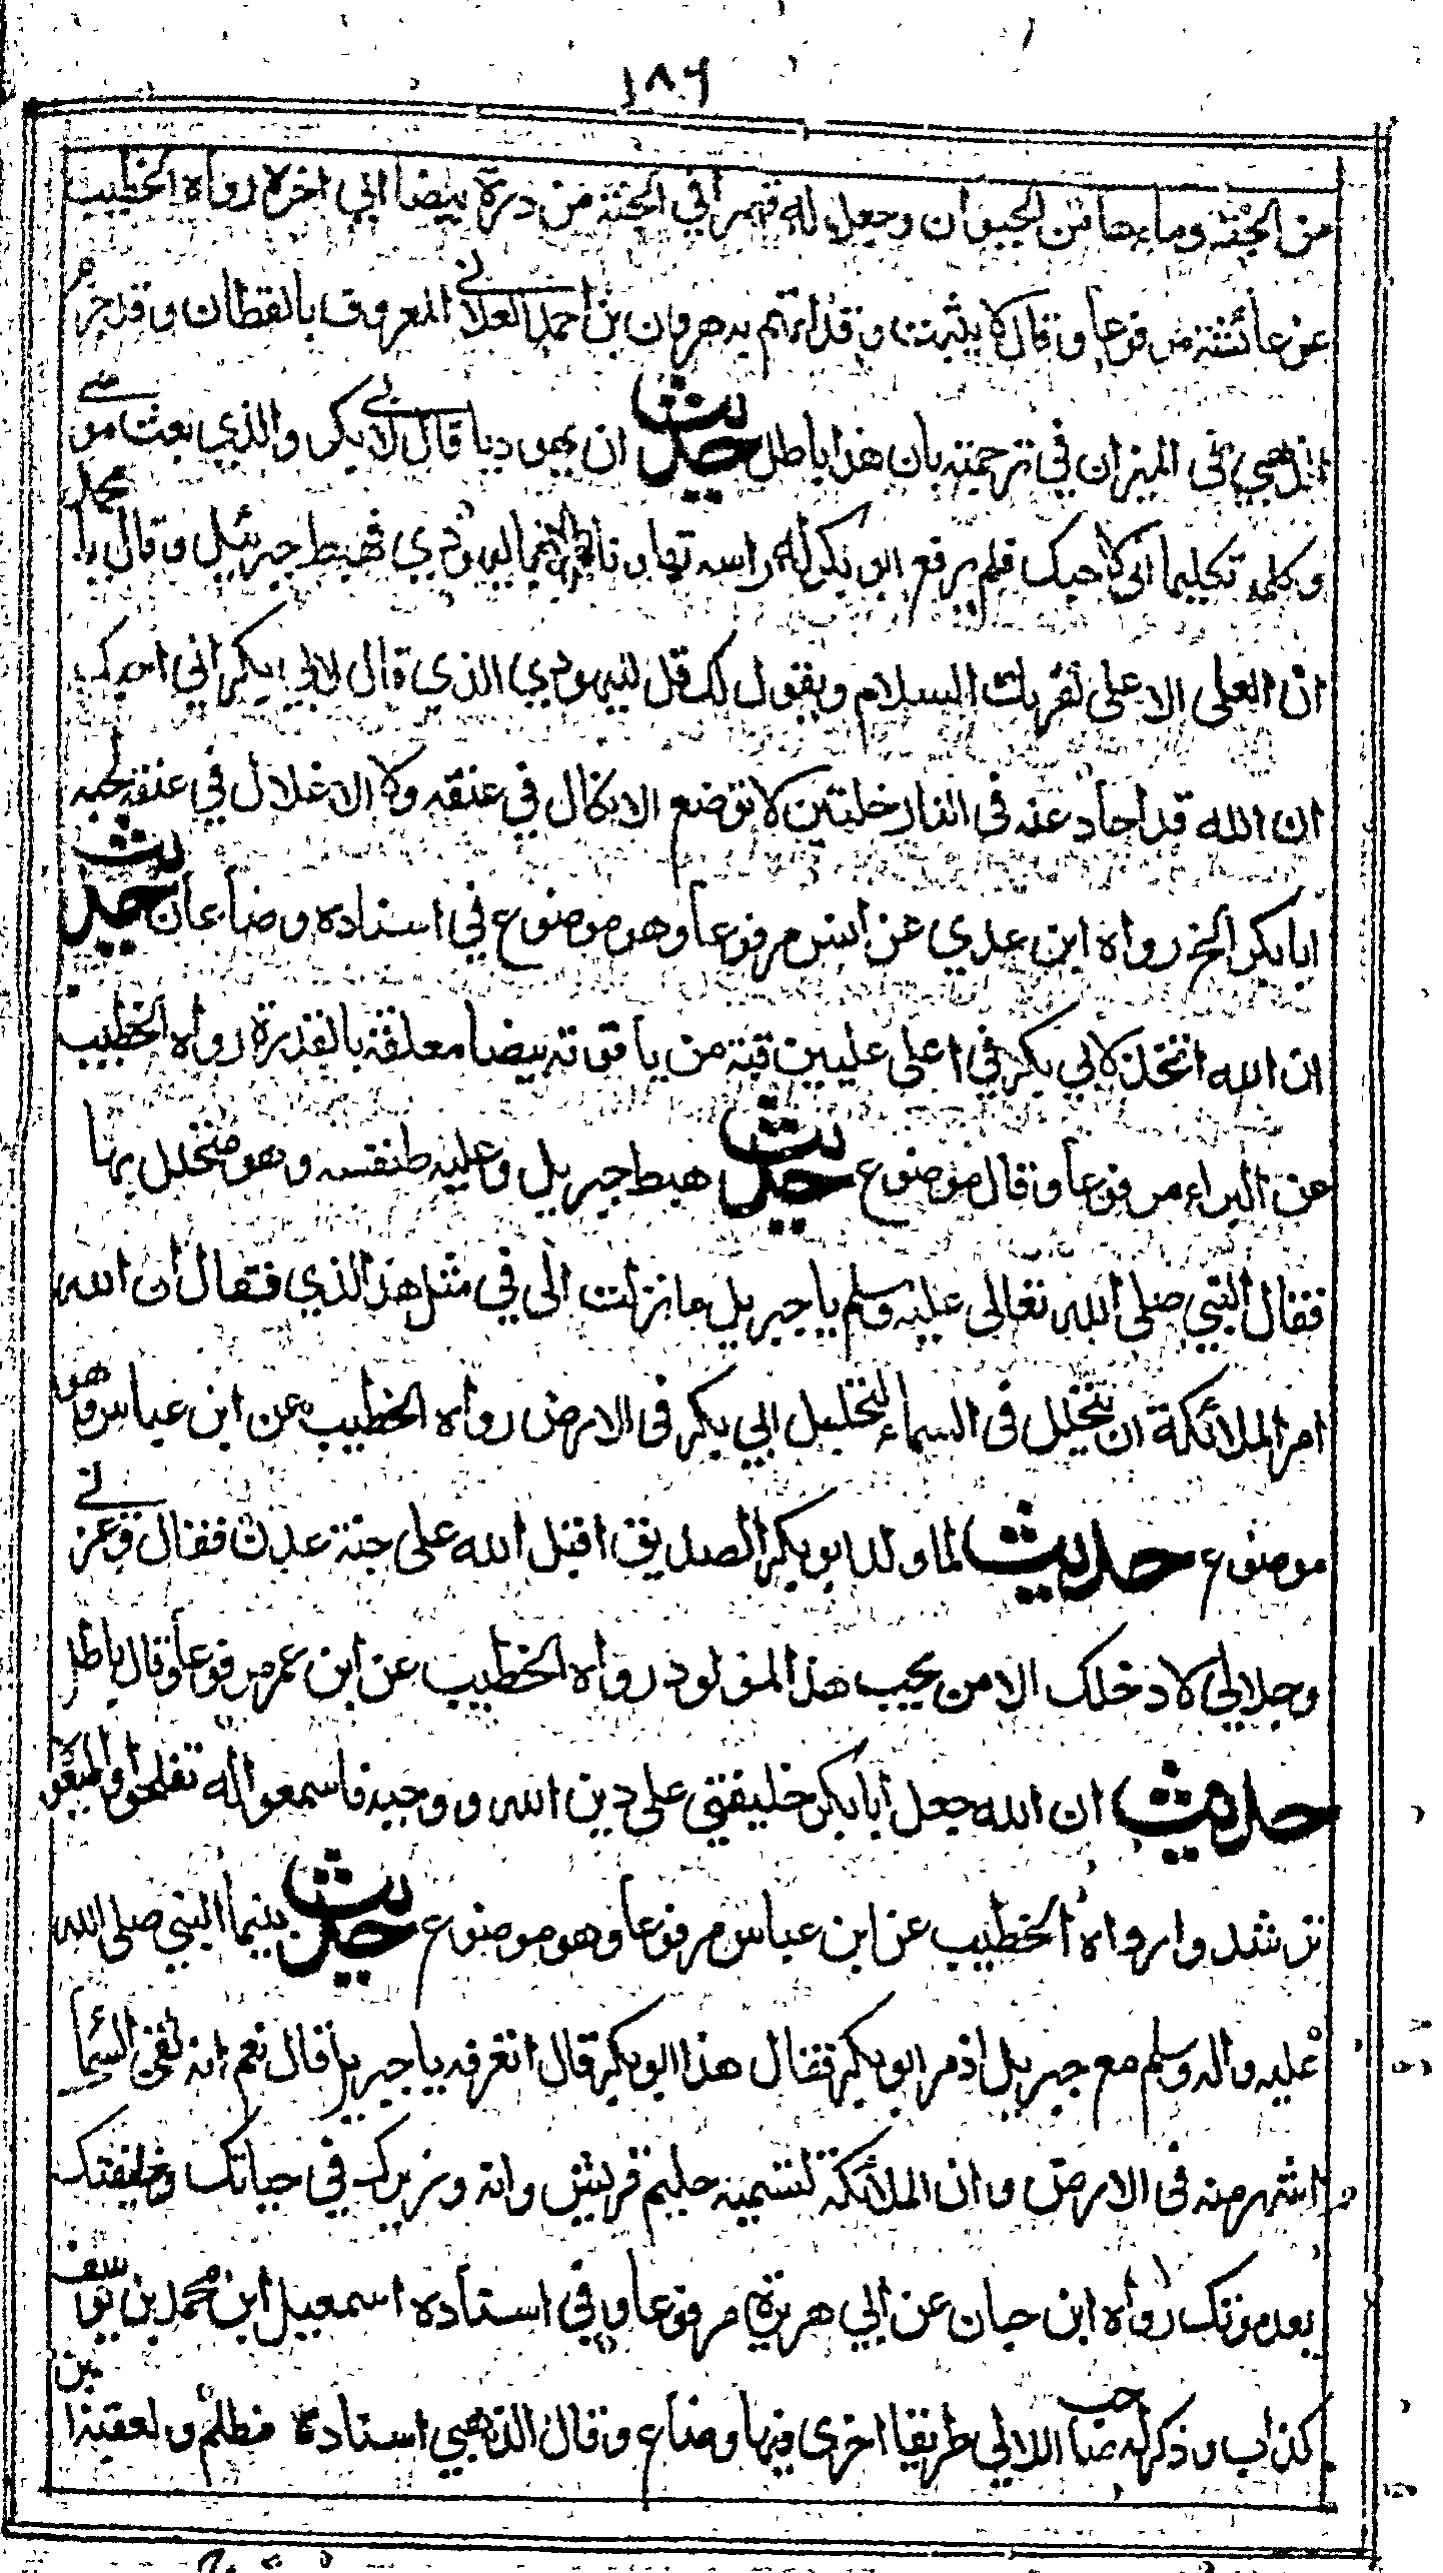 ١٨٦
من الجنة وماءها من الحيوان وجعل له قصرا في الجنة من درة بيضا الى اخره رواه الخطيب
عن عائشة مرفوعا وقال لا يثبت وقد اتهم به هرون بن احمد العلاني المعروف بالقطان وقد جزم
الذهبي في الميزان في ترجمته بان هذا باطل حديث ان يهوديا قال لابي بكر والذي بعث موسى
وكلمه تكليما اني لاحبك فلم يرفع ابو بكر له راسه تهاونا باليهودي فهبط جبرئيل وقال يا محمد
ان العلى الاعلى يقرئك السلام ويقول لك قل لليهودي الذي قال لابي بكر اني احبك
ان الله قد احاد عنه في النار خلتين لا توضع الانكال في عنقه ولا الاغلال في عنقه لحبه
ابا بكر الخ رواه ابن عدي عن انس مرفوعا وهو موضوع في اسناده وضاعان حديث
ان الله اتخذ لابي بكر في اعلى عليين قبة من ياقوتة بيضا معلقة بالقدرة رواه الخطيب
عن البراء مرفوعا وقال موضوع حديث هبط جبريل وعليه طنفسه وهو متخلل بها
فقال النبي صلى الله تعالى عليه وسلم يا جبريل ما نزلت الى في مثل هذا الذي فقال ان الله
امر الملائكة ان تتخلل في السماء لتخليل ابي بكر في الارض رواه الخطيب عن ابن عباس وهو
موضوع حديث لما ولد ابو بكر الصديق اقبل الله على جنة عدن فقال وعزتي
وجلالي لا دخلك الا من يحب هذا المولود رواه الخطيب عن ابن عمر مرفوعا وقال باطل
حديث ان الله جعل ابا بكر خليفتي على دين الله ووحيه فاسمعوا له تفلحوا واطيعوا
ترشدوا رواه الخطيب عن ابن عباس مرفوعا وهو موضوع حديث بينما النبي صلى الله
عليه واله وسلم مع جبريل اذ مر ابو بكر فقال هذا ابو بكر قال اتعرفه يا جبريل قال نعم انه لفي السماء
اشهر منه في الارض وان الملائكة لتسميه حليم قريش وانه وزيرك في حياتك وخليفتك
بعد موتك رواه ابن حبان عن ابي هريرة مرفوعا وفي اسناده اسمعيل ابن محمد بن يوسف
كذاب وذكر له صاحب اللالي طريقا اخرى فيها وضاع وقال الذهبي اسناده مظلم